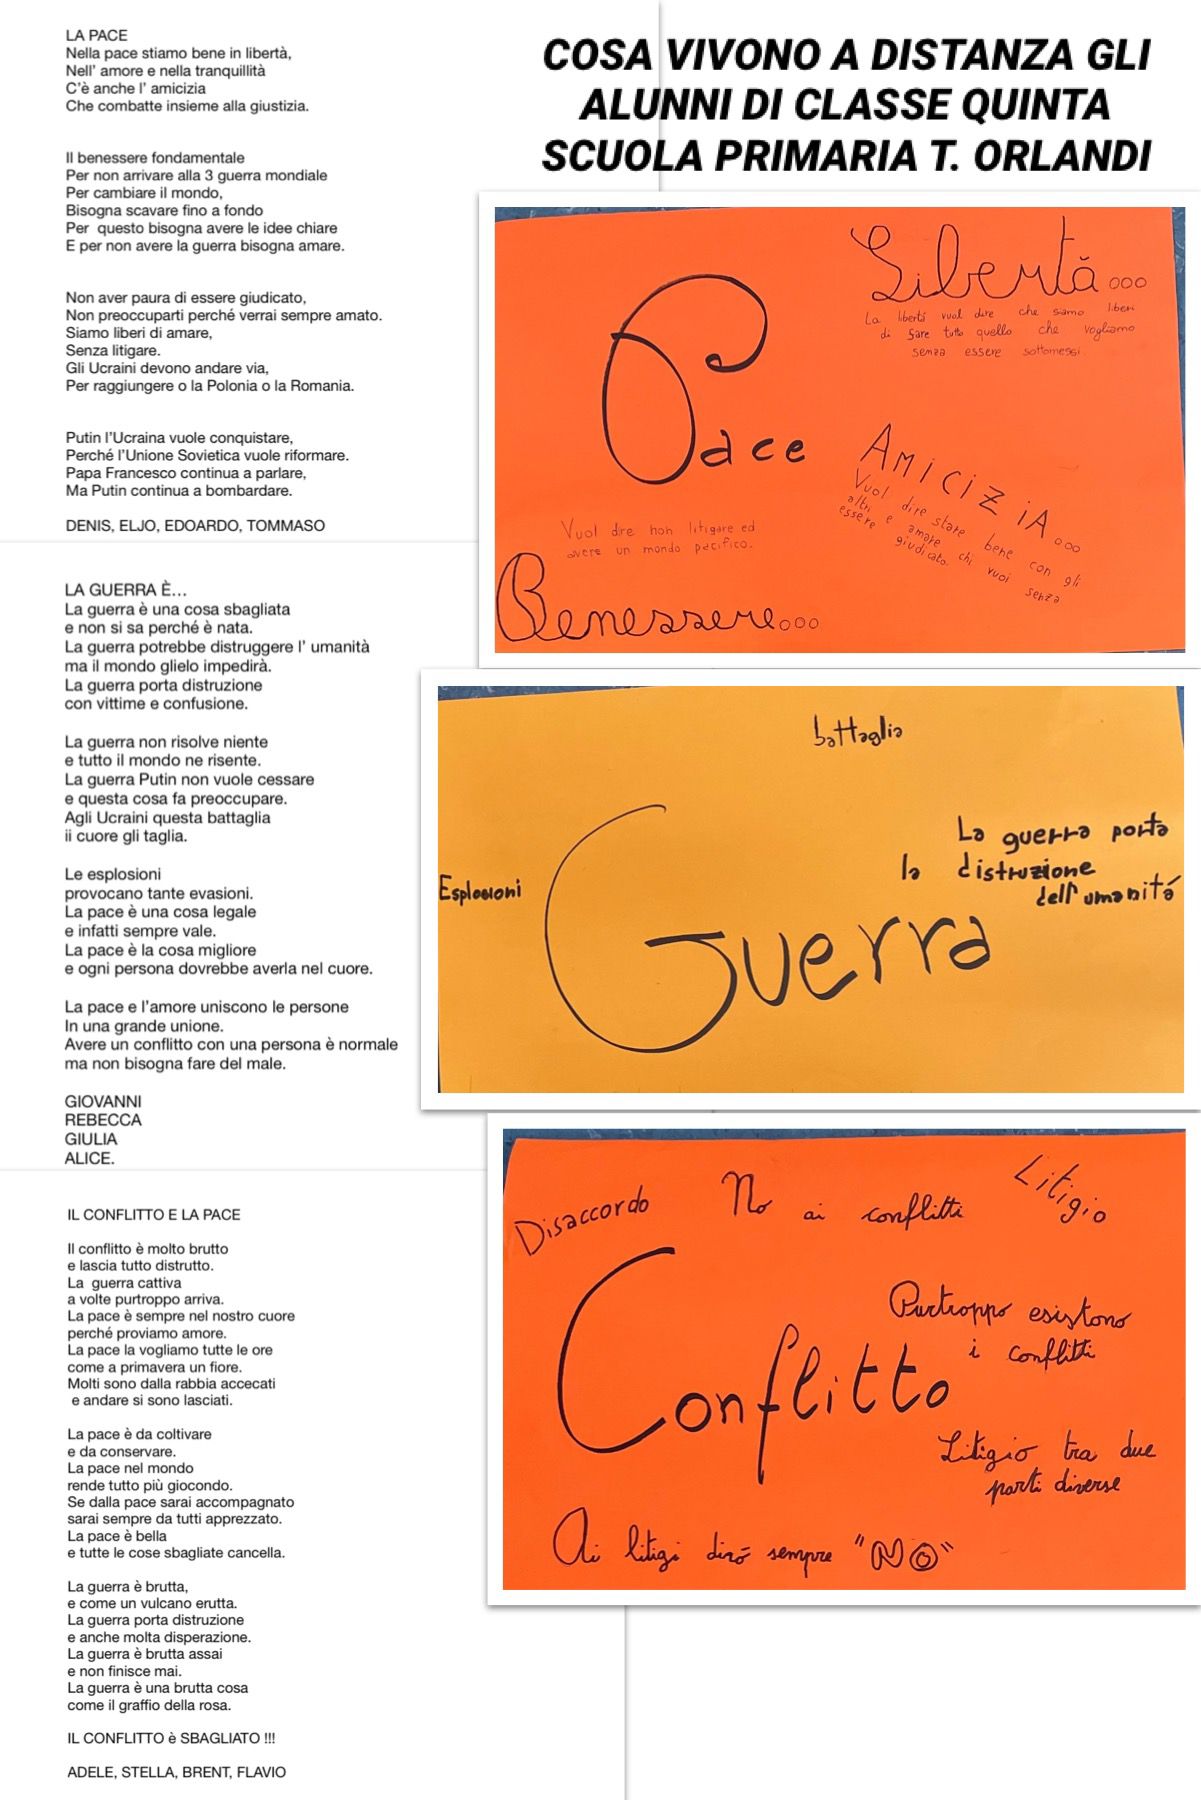 COSA VIVONO A DISTANZA GLI
ALUNNI DI CLASSE QUINTA
SCUOLA PRIMARIA T. ORLANDI
LA PACE
Nella pace stiamo bene in libertà,
Nell' amore e nella tranquillità
C'è anche l' amicizia
Che combatte insieme alla giustizia.
Il benessere fondamentale
Per non arrivare alla 3 guerra mondiale
Per cambiare il mondo,
Bisogna scavare fino a fondo
Per questo bisogna avere le idee chiare
E per non avere la guerra bisogna amare.
Non aver paura di essere giudicato,
Non preoccuparti perché verrai sempre amato.
Siamo liberi di amare,
Senza litigare.
Gli Ucraini devono andare via,
Per raggiungere o la Polonia o la Romania.
Putin l'Ucraina vuole conquistare,
Perché l'Unione Sovietica vuole riformare.
Papa Francesco continua a parlare,
Ma Putin continua a bombardare.
DENIS, ELJO, EDOARDO, TOMMASO
LA GUERRA È...
La guerra è una cosa sbagliata
e non si sa perché è nata.
La guerra potrebbe distruggere l' umanità
ma il mondo glielo impedirà.
La guerra porta distruzione
con vittime e confusione.
La guerra non risolve niente
e tutto il mondo ne risente.
La guerra Putin non vuole cessare
e questa cosa fa preoccupare.
Agli Ucraini questa battaglia
ii cuore gli taglia.
Le esplosioni
provocano tante evasioni.
La pace è una cosa legale
e infatti sempre vale.
La pace è la cosa migliore
e ogni persona dovrebbe averla nel cuore.
La pace e l'amore uniscono le persone
In una grande unione.
Avere un conflitto con una persona è normale
ma non bisogna fare del male.
GIOVANNI
REBECCA
GIULIA
ALICE.
IL CONFLITTO E LA PACE
Il conflitto è molto brutto
e lascia tutto distrutto.
La guerra cattiva
a volte purtroppo arriva.
La pace è sempre nel nostro cuore
perché proviamo amore.
La pace la vogliamo tutte le ore
come a primavera un fiore.
Molti sono dalla rabbia accecati
e andare si sono lasciati.
La pace è da coltivare
e da conservare.
La pace nel mondo
rende tutto più giocondo.
Se dalla pace sarai accompagnato
sarai sempre da tutti apprezzato.
La pace è bella
e tutte le cose sbagliate cancella.
La guerra è brutta,
e come un vulcano erutta.
La guerra porta distruzione
e anche molta disperazione.
La guerra è brutta assai
e non finisce mai.
La guerra è una brutta cosa
come il graffio della rosa.
IL CONFLITTO è SBAGLIATO !!!
ADELE, STELLA, BRENT, FLAVIO
Libertà...
La libertà vuol dire che siamo liberi
di fare tutto quello che vogliamo
senza essere sottomessi.
Pace
Vuol dire non litigare ed
avere un mondo pacifico.
AMICIZiA...
Vuol dire stare bene con gli
altri e amare chi vuoi senza
essere giudicato.
Benessere...
battaglia
La guerra porta
la distruzione
dell'umanitá
Esplosioni
Guerra
Disaccordo
No ai conflitti
Litigio
Conflitto
Purtroppo esistono
i conflitti
Litigio tra due
parti diverse
Ai litigi dirò sempre "NO"